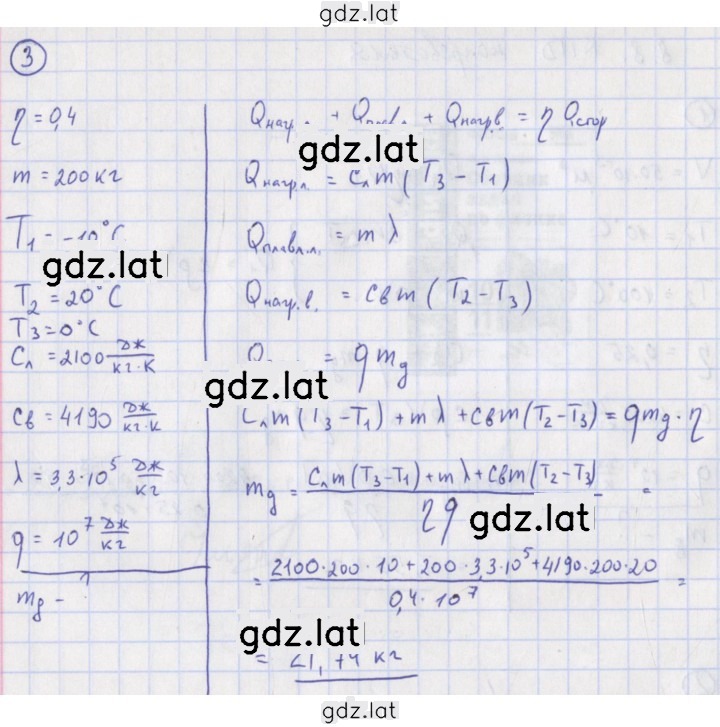 gdz.lat
3
η = 0,4
m = 200 кг
T₂ = 20°C
T₃ = 0°C
Cл = 2100 Дж/кг·К
Cв = 4190 Дж/кг·К
λ = 3,3·10⁵ Дж/кг
q = 10⁷ Дж/кг
mg -
+ + Qнагр.в = η Qсгор
gdz.lat
Qнагр.л. = Cл m (T₃ - T₁)
gdz.lat
Qплавл.л. = m λ
Qнагр.в. = Cв m (T₂ - T₃)
= q mg
gdz.lat
Cл m (T₃ - T₁) + m λ + Cв m (T₂ - T₃) = q mg · η
mg = Cл m (T₃ - T₁) + m λ + Cв m (T₂ - T₃) / =
gdz.lat
= 2100·200·10 + 200·3,3·10⁵ + 4190·200·20 / 0,4·10⁷ =
gdz.lat
= кг
gdz.lat